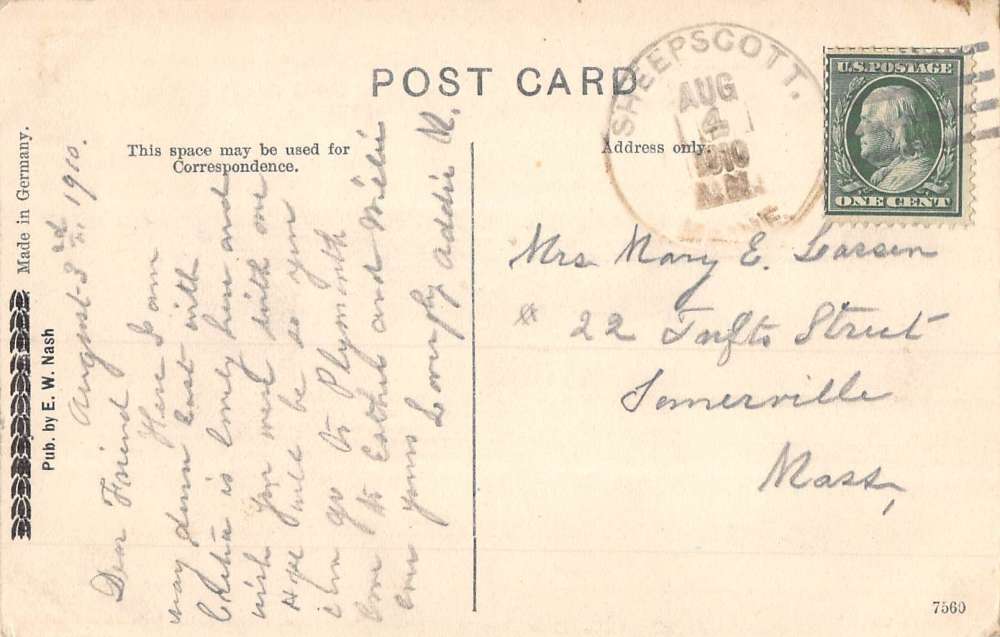 POST CARD
This space may be used for
Correspondence.
Address only.
SHEEPSCOTT.
AUG
4
1910
A.M.
ME.
U.S. POSTAGE
ONE CENT
Made in Germany.
Pub. by E. W. Nash
August 3rd 1910.
Dear Friend
Here I am
way down East with
is lovely here and
wish you were with me
Hope will be so you
can go to Plymouth
Love to Esther and Willie
ever yours Lovingly Addie K.
Mrs Mary E. Larsen
# 22 Tufts Street
Somerville
Mass,
7560